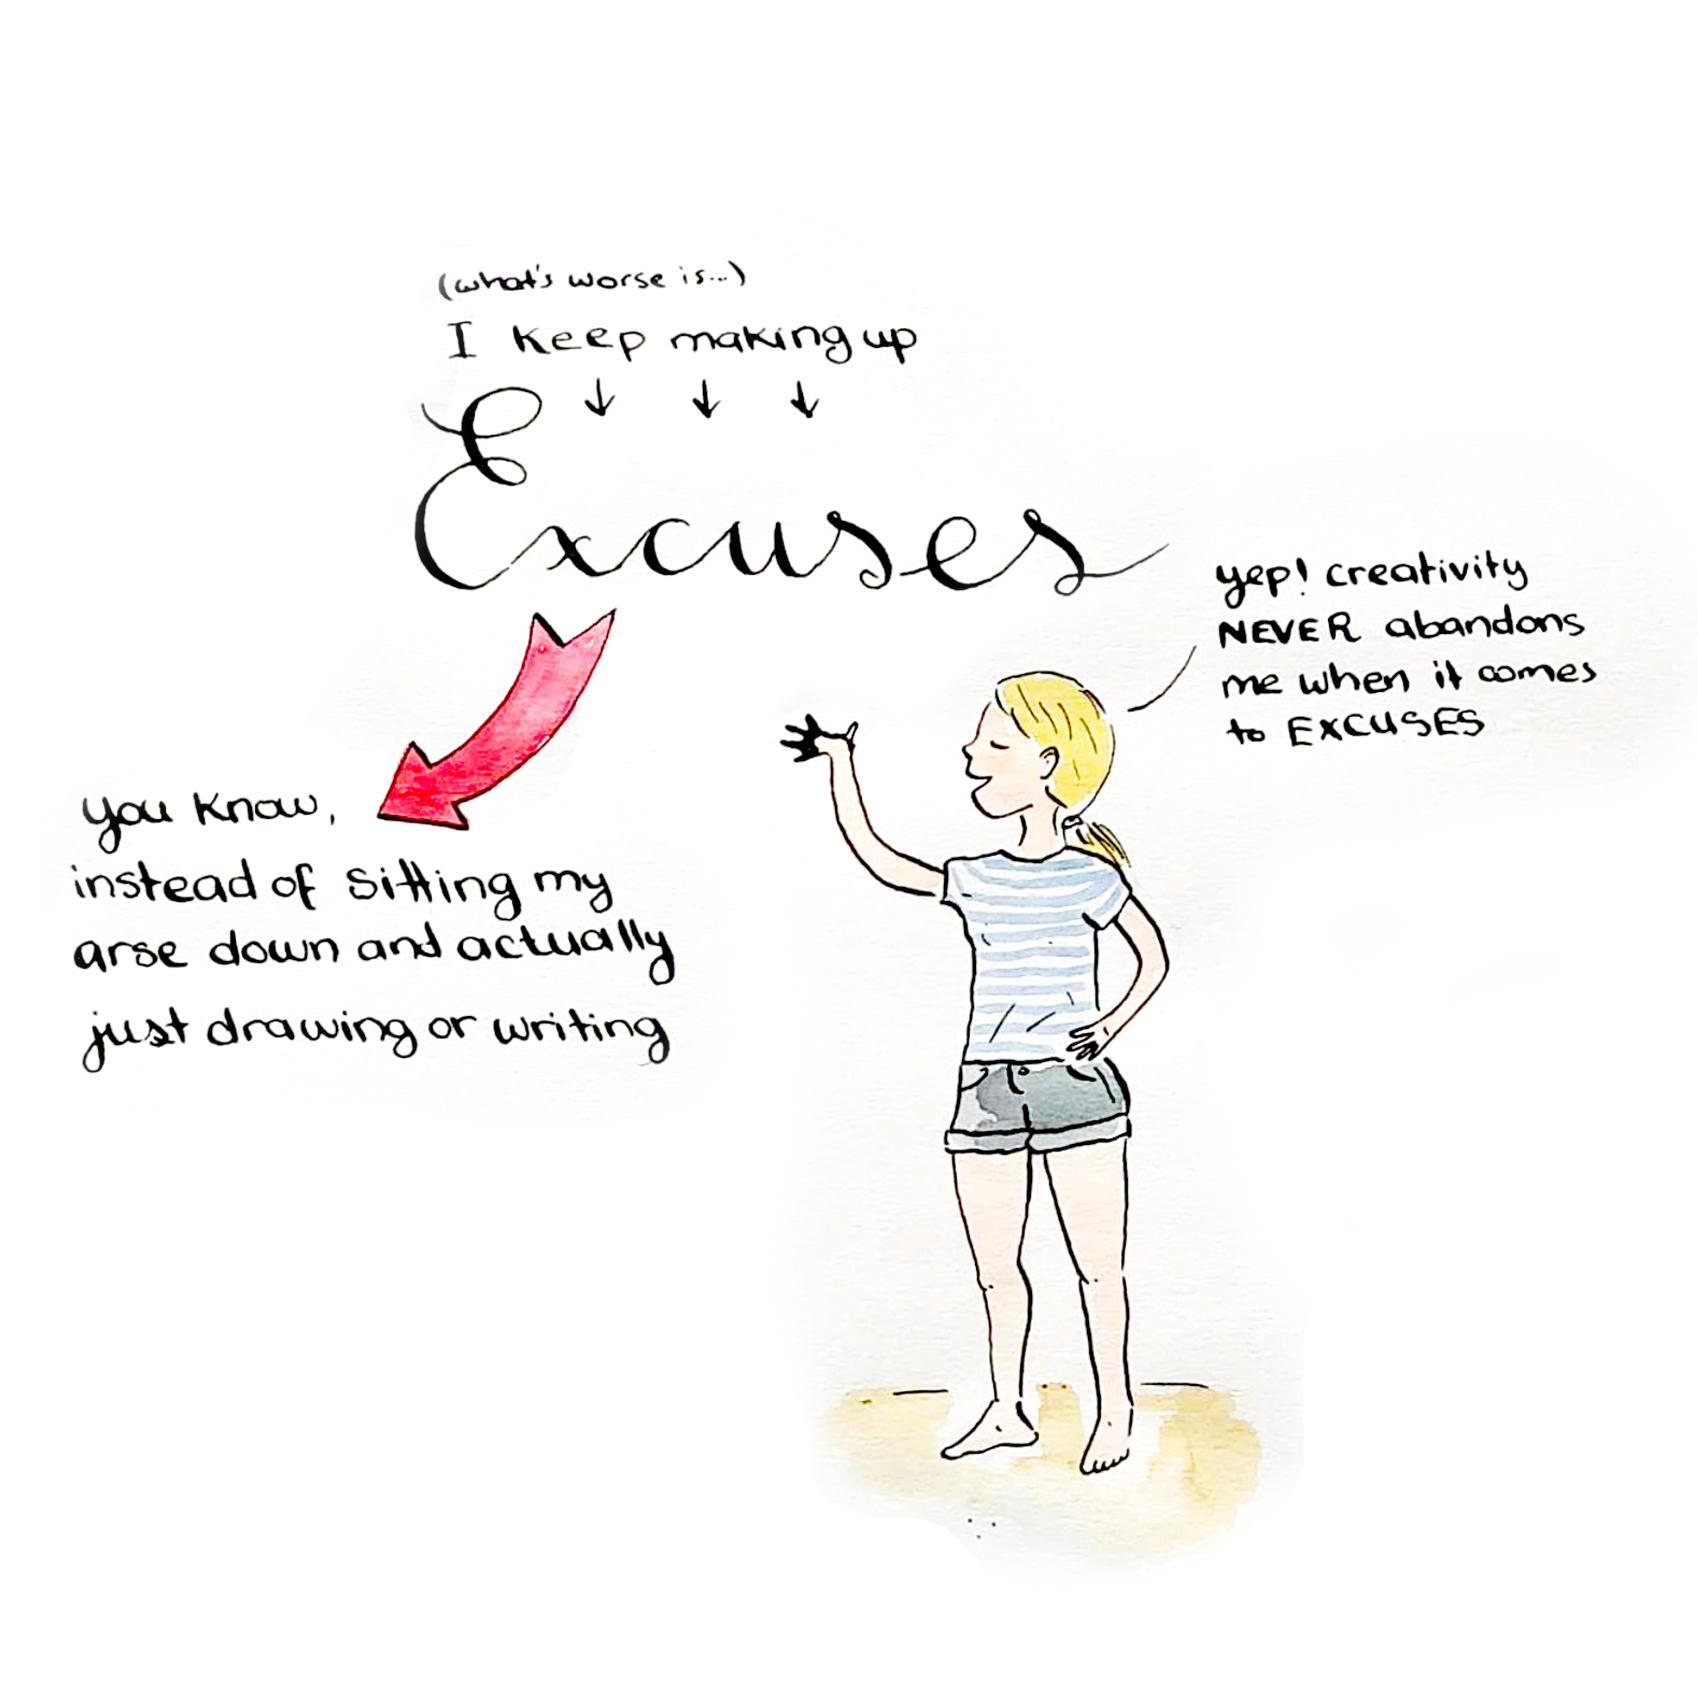 (what's worse is...)
I keep making up
Excuses
yep! creativity
NEVER abandons
me when it comes
to EXCUSES
you know,
instead of sitting my
arse down and actually
just drawing or writing